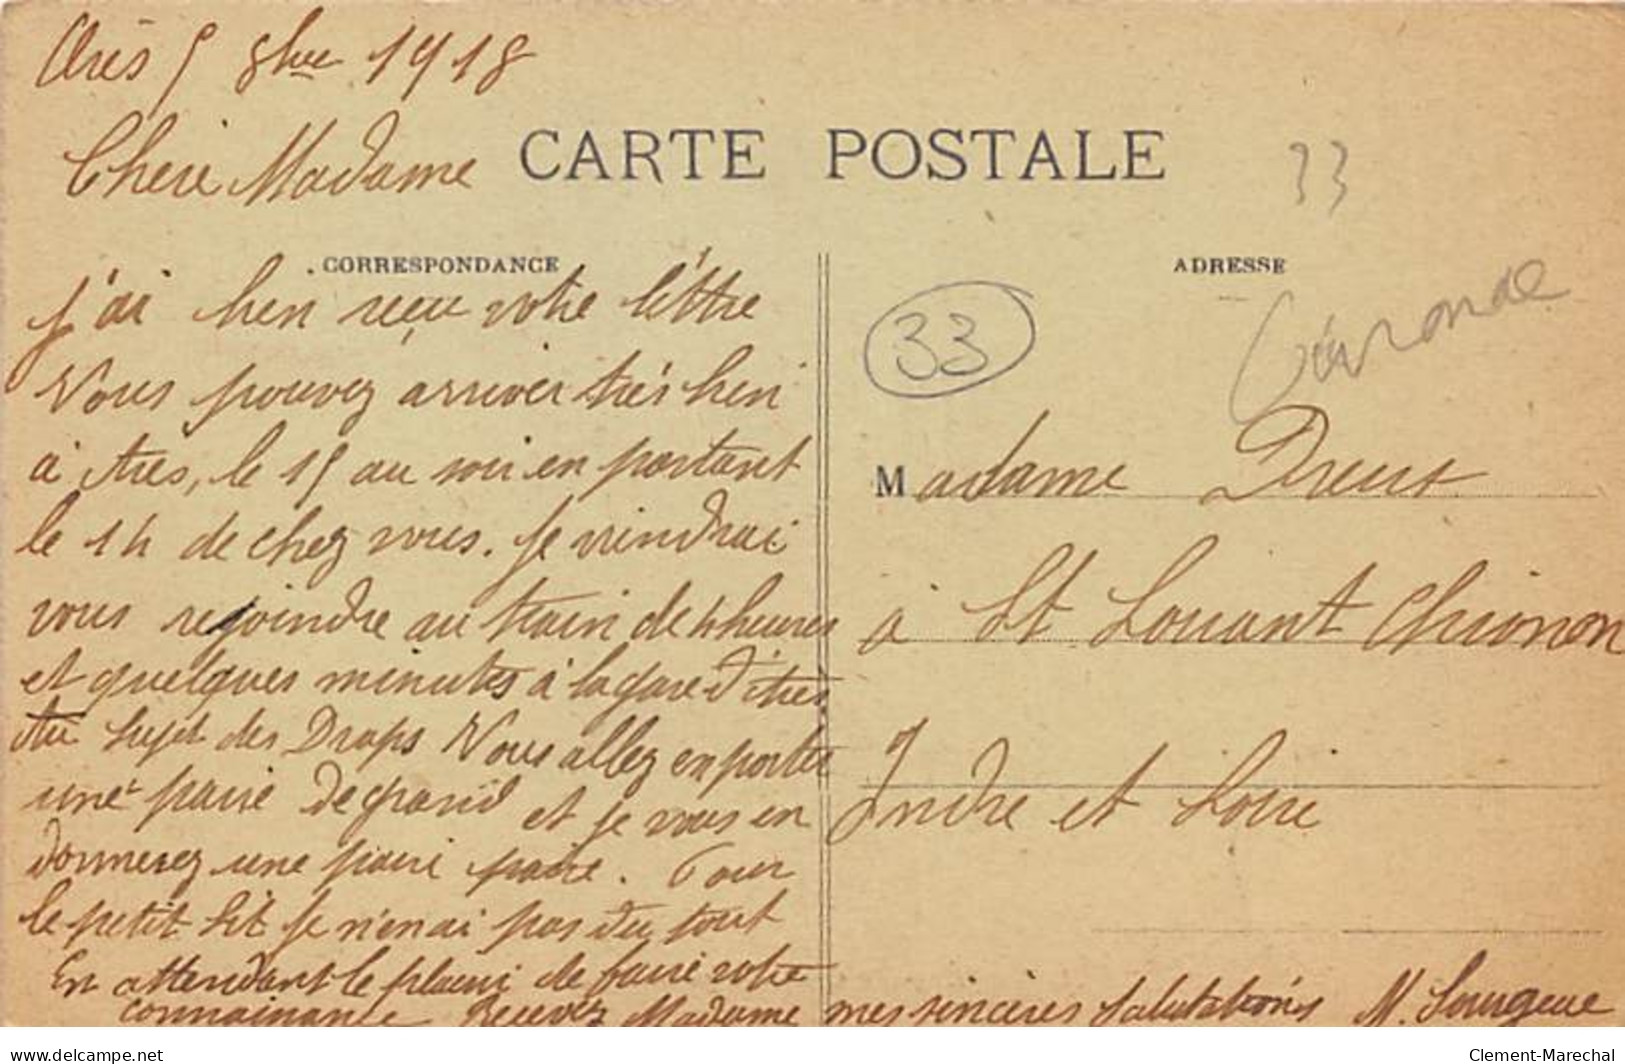 Arès 5 8bre 1918
Chere Madame
CARTE POSTALE
33
CORRESPONDANCE
ADRESSE
j'ai bien reçu votre lettre
Vous pouvez arriver très bien
à Arès, le 15 au soir en partant
le 14 de chez vous. je viendrai
vous rejoindre au train de 4 heures
et quelques minutes à la gare d'Arès
Au sujet des Draps Vous allez en porter
une paire de grand et je vous en
donnerez une pair paire. Pour
le petit lit je n'en ai pas du tout
En attendant le plaisi de faire votre
connainance Recevez Madame mes sincères salutations M.
33
Gironde
Madame Dreux
à St Louant Chionon
Indre et Loire
DELCAMPE.NET
Clement-Marechal